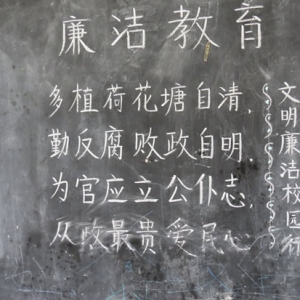 廉洁教育
多植荷花塘自清，
勤反腐败政自明．
为官应立公仆志，
从政最贵爱民心
文明廉洁校园行